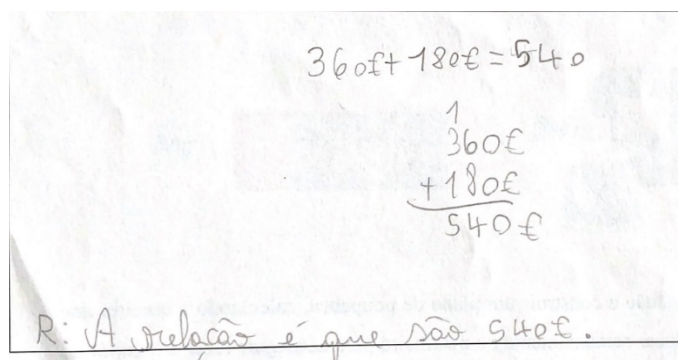 360£+ 180€ = 540
1
360€
+180€
540€
R: A relação é que são 540€.